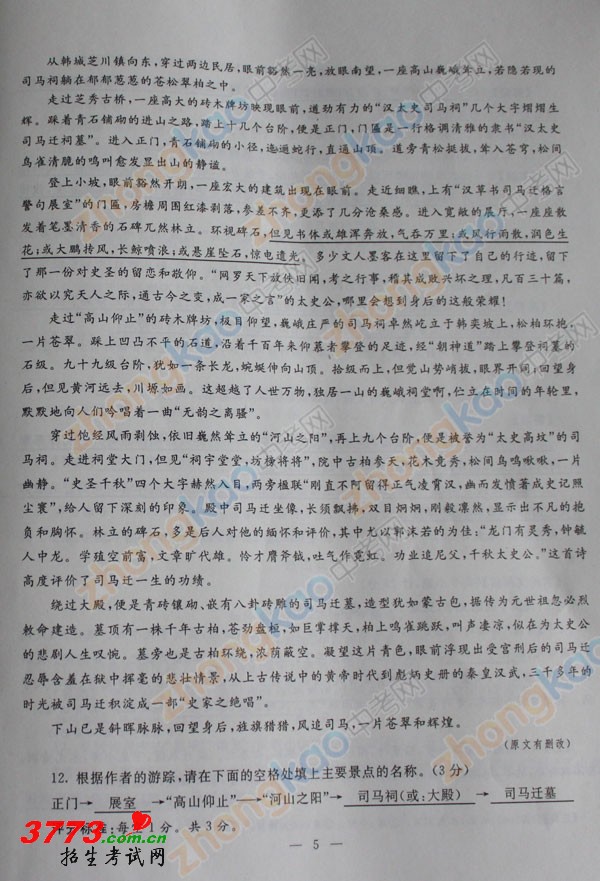 从韩城芝川镇向东，穿过两边民居，眼前豁然一亮，放眼南望，一座高山巍峨耸立，若隐若现的
司马祠躺在郁郁葱葱的苍松翠柏之中。
走过芝秀古桥，一座高大的砖木牌坊映现眼前，遒劲有力的“汉太史司马祠”几个大字熠熠生
辉。踩着青石铺砌的进山之路，踏上十几个台阶，便是正门，门匾是一行格调清雅的隶书“汉太史
司马迁祠墓”。进入正门，青石铺砌的小径，迤逦蛇行，直通山顶。道旁青松挺拔，耸入苍穹，松间
鸟雀清脆的鸣叫愈发里出山的静谧。
登上小坡，眼前豁然开朗，一座宏大的建筑出现在眼前。走近细瞧，上有“汉草书司马迁格言
警句展室”的门匾，房檐周围红漆剥落，参差不齐，更添了几分沧桑感。进入宽敞的展厅，一座座散
发着笔墨清香的石碑兀然林立。环视碑石，但见书体或雄浑奔放，气吞万里；或风行雨散，润色生
花；或大鹏抟风，长鲸喷浪；或悬崖坠石，惊电遗光。多少文人墨客在这里留下了自己的行迹，留下
了那一份对史圣的留恋和敬仰。“网罗天下放佚旧闻，考之行事，稽其成败兴坏之理，凡百三十篇，
亦欲以究天人之际，通古今之变，成一家之言”的太史公，哪里会想到身后的这般荣耀！
走过“高山仰止”的砖木牌坊，极目仰望，巍峨庄严的司马祠卓然屹立于韩奕坡上，松柏环抱，
一片苍翠。踩上凹凸不平的石道，沿着千百年来仰慕者攀登的足迹，经“朝神道”踏上攀登祠墓的
石级。九十九级台阶，犹如一条长龙，蜿蜒伸向山顶。拾级而上，但觉山势峭拔，眼界开阔；回望身
后，但见黄河远去，川塬如画。这超越了人世万物，独居一山的巍峨祠堂啊，伫立在时间的年轮里，
默默地向人们吟唱着一曲“无韵之离骚”。
穿过饱经风雨剥蚀，依旧巍然耸立的“河山之阳”，再上九个台阶，便是被誉为“太史高坟”的司
马祠。走进祠堂大门，但见“祠宇堂堂，坊榜将将”，院中古柏参天，花木竞秀，松间鸟鸣啾啾，一片
幽静。“史圣千秋”四个大字赫然入目，两旁楹联“刚直不阿留得正气凌霄汉，幽而发愤著成史记照
尘寰”，给人留下深刻的印象。殿中司马迁坐像，长须飘拂，双目炯炯，刚毅凛然，显示出不凡的抱
负和胸怀。林立的碑石，多是后人对他的缅怀和评价，其中尤以郭沫若的为佳：“龙门有灵秀，钟毓
人中龙。学殖空前富，文章旷代雄。怜才膺斧钺，吐气作霓虹。功业追尼父，千秋太史公。”这首诗
高度评价了司马迁一生的功绩。
绕过大殿，便是青砖镶砌、嵌有八卦砖雕的司马迁墓，造型犹如蒙古包，据传为元世祖忽必烈
敕命建造。墓顶有一株千年古柏，苍劲盘桓，如巨掌撑天，柏上鸣雀跳跃，叫声凄凉，似在为太史公
的悲剧人生叹惋。墓旁也是古柏环绕，浓荫蔽空。凝望这片青色，眼前浮现出受宫刑后的司马迁
忍辱含羞在狱中挥毫的悲壮情景，从上古传说中的黄帝时代到彪炳史册的秦皇汉武，三千多年的
时光被司马迁积淀成一部“史家之绝唱”。
下山已是斜晖脉脉，回望身后，旌旗猎猎，风追司马，一片苍翠和辉煌。
（原文有删改）
12. 根据作者的游踪，请在下面的空格处填上主要景点的名称。（3分）
正门→ 展室 →“高山仰止”→“河山之阳”→ 司马祠（或：大殿） → 司马迁墓
评分标准：每空1分。共3分。
— 5 —
3773.com.cn
招生考试网
zhongkao中考网